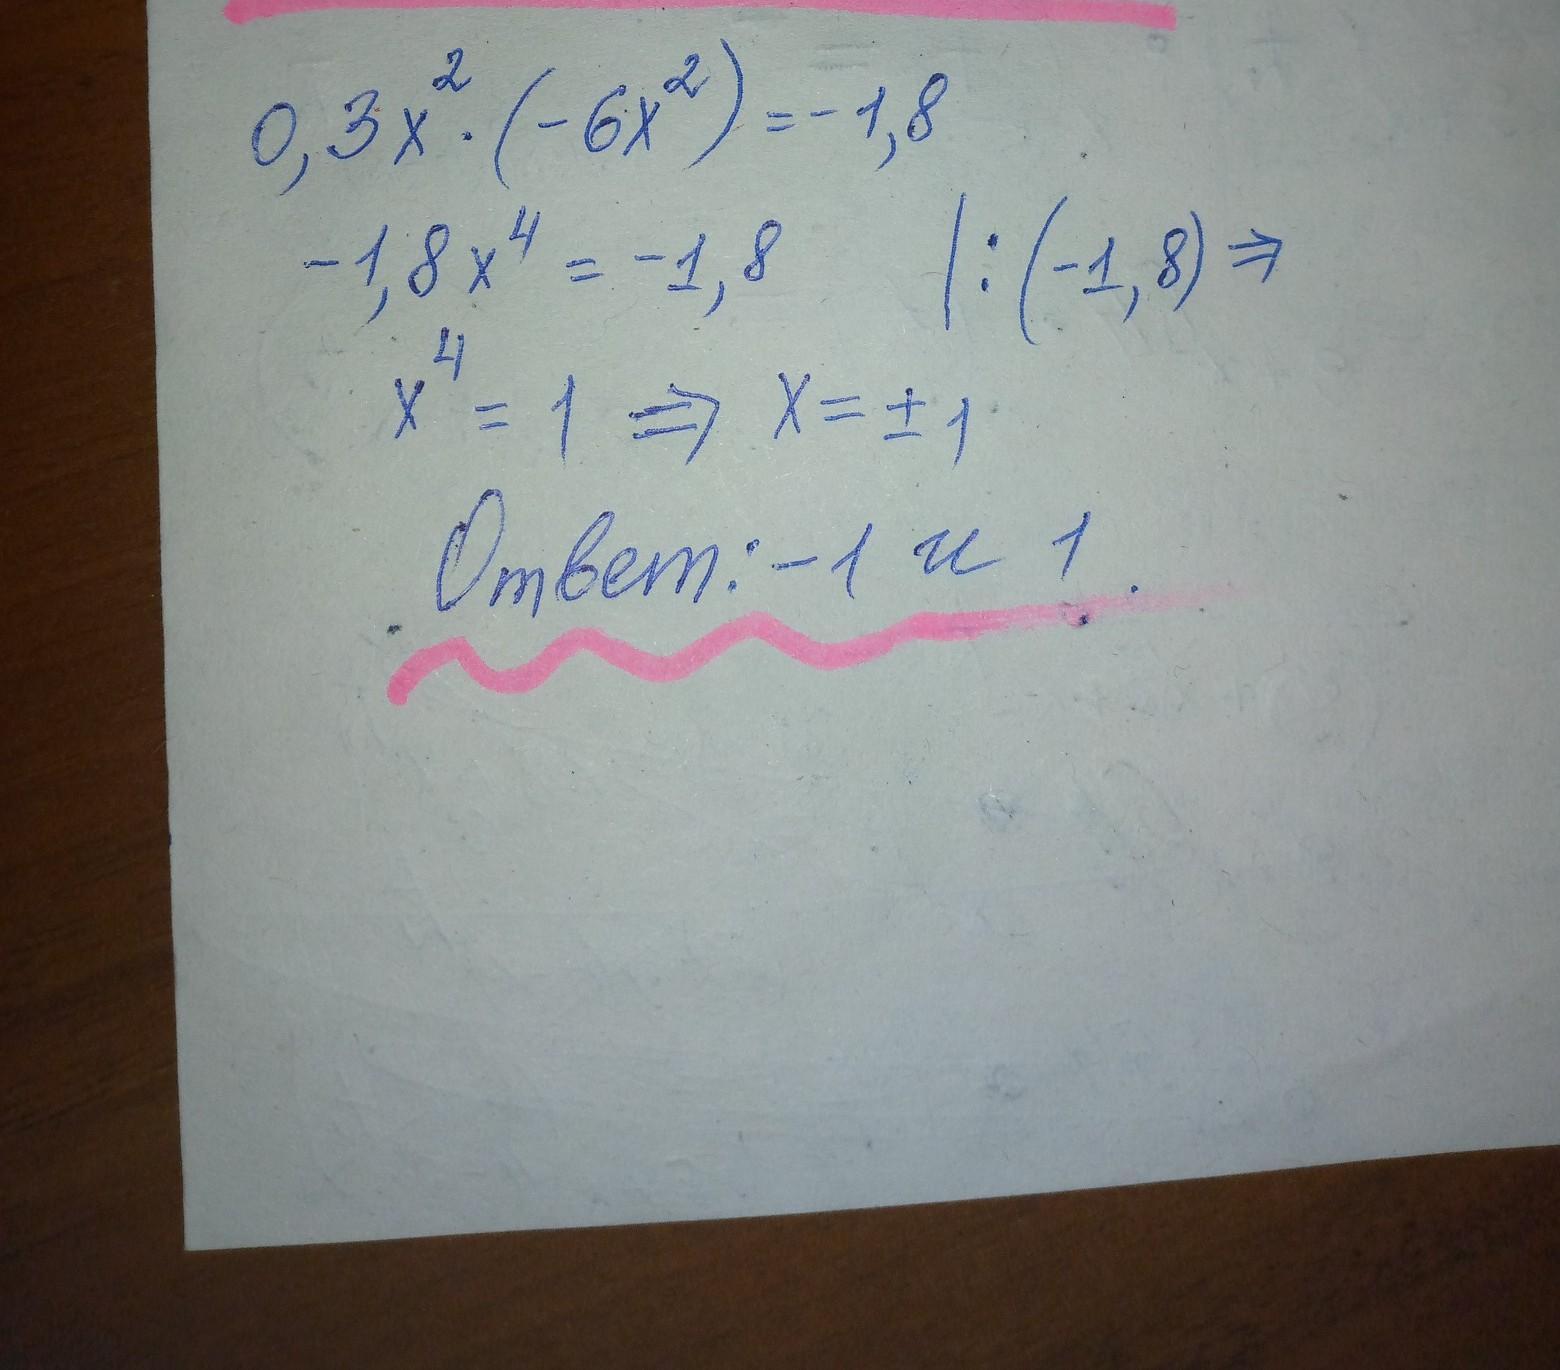 0,3x²·(-6x²)=-1,8
-1,8x⁴ = -1,8 |:(-1,8)⇒
x⁴ = 1 ⇒ x=±1
Ответ: -1 и 1.